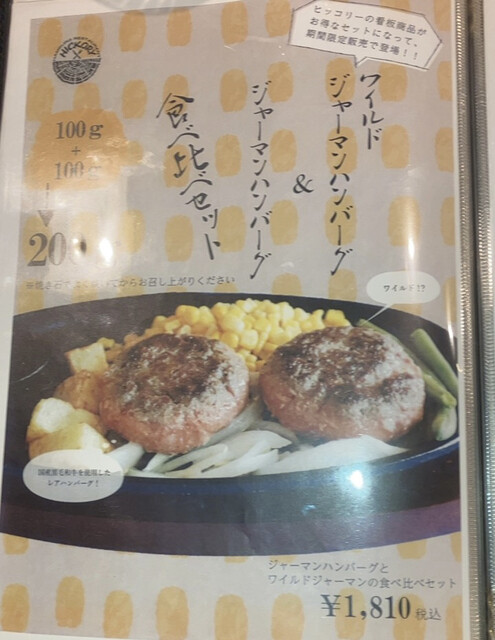 ヒッコリーの看板商品が
お得なセットになって、
期間限定販売で登場！！
HICKORY
ワイルド
ジャーマンハンバーグ
&
ジャーマンハンバーグ
食べ比べセット
100g
+
100g
200
ワイルド!?
国産黒毛和牛を使用した
レアハンバーグ！
ジャーマンハンバーグと
ワイルドジャーマンの食べ比べセット
￥1,810 税込